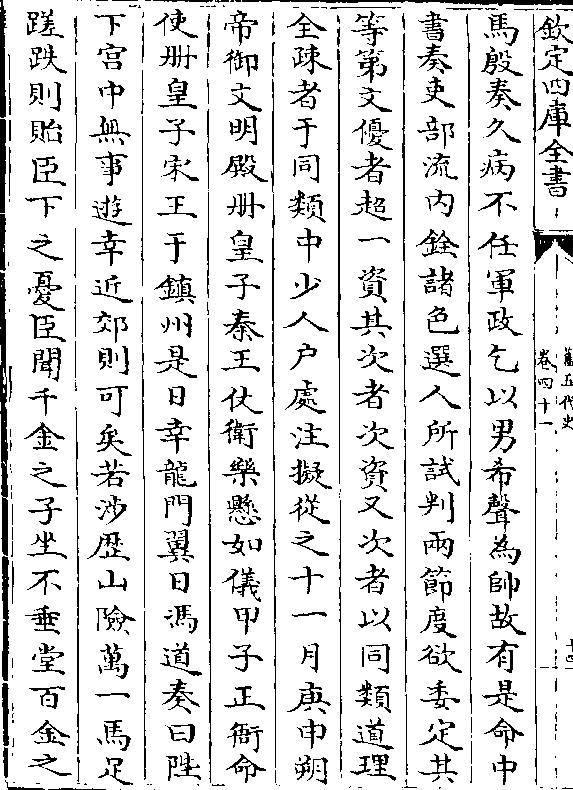 欽定四庫全書
舊五代史
卷四十一
馬殷奏久病不任軍政乞以男希聲為帥故有是命中
書奏吏部流内銓諸色選人所試判兩節度欲委定其
等第文優者超一資其次者次資又次者以同類道理
全疎者于同類中少人户處注擬從之十一月庚申朔
帝御文明殿册皇子秦王仗衛樂懸如儀甲子正衙命
使册皇子宋王于鎮州是日幸龍門翼日馮道奏曰陛
下宫中無事遊幸近郊則可矣若涉歴山險萬一馬足
蹉跌則貽臣下之憂臣聞千金之子坐不垂堂百金之